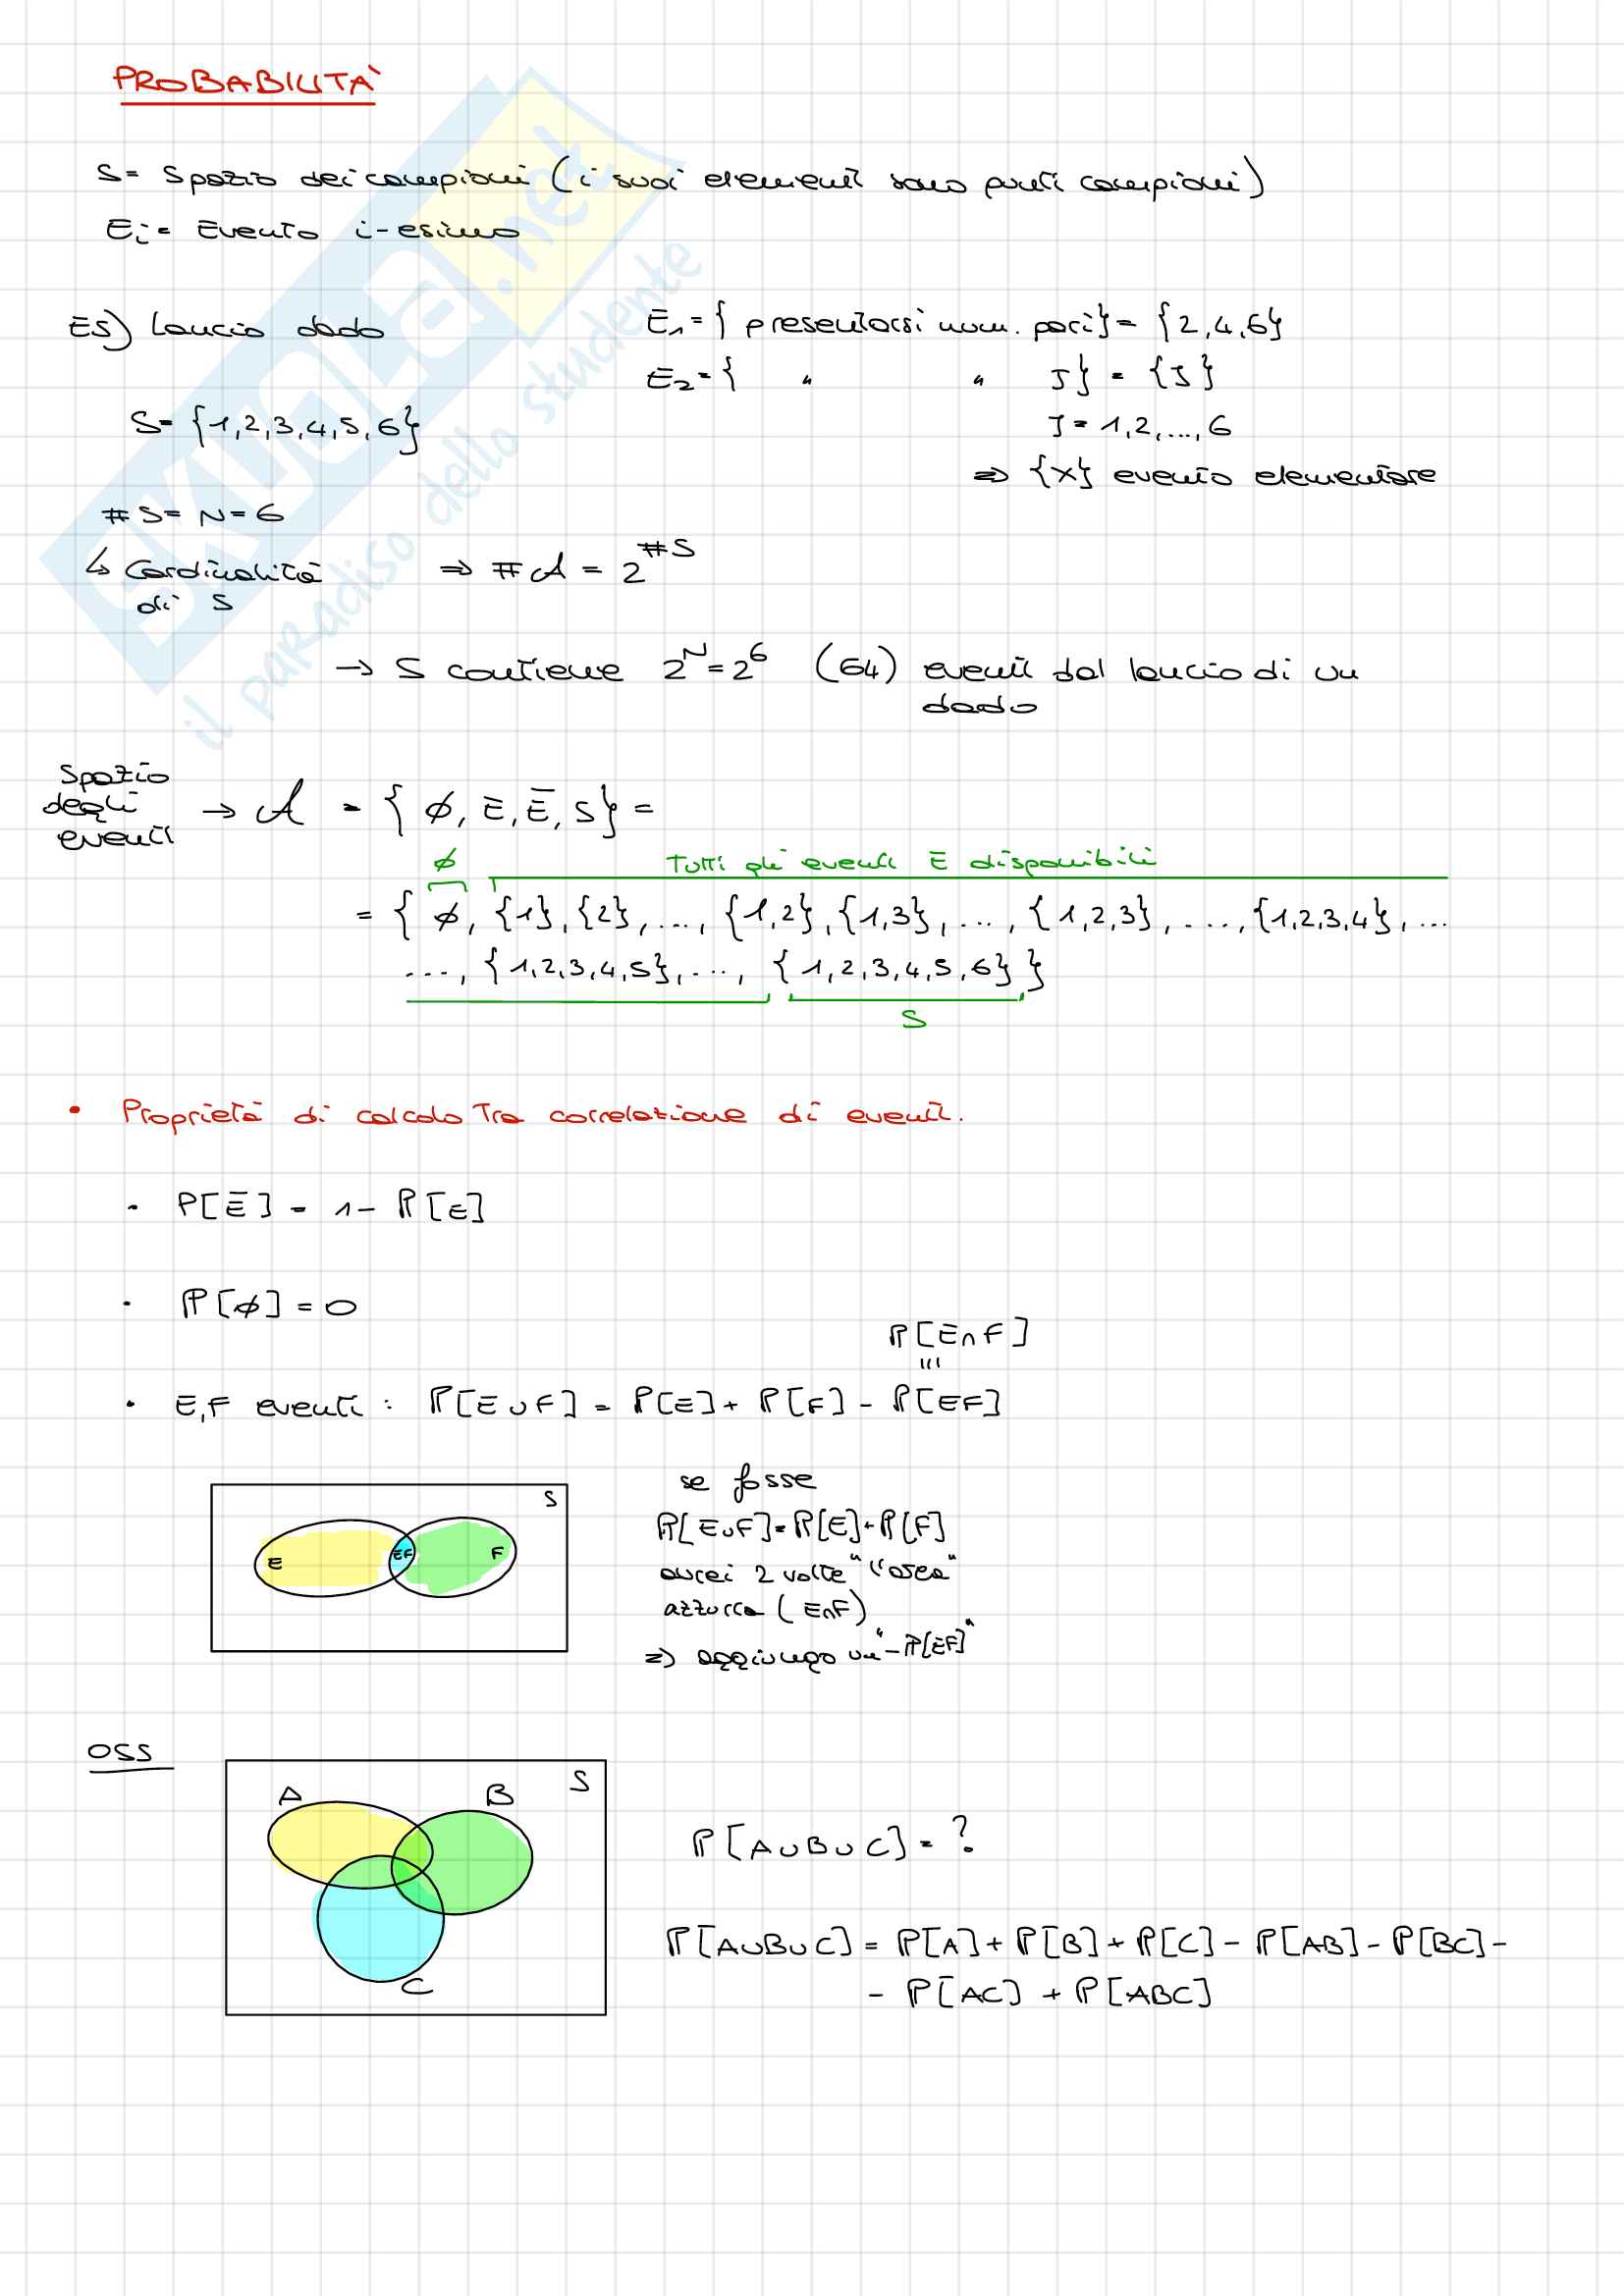 PROBABILITÀ
S = Spazio dei campioni (i suoi elementi sono punti campioni)
Ei = Evento i-esimo
ES) Lancio dado
E1 = { presentarsi num. pari} = {2,4,6}
E2 = { " " J} = {J}
S = {1,2,3,4,5,6}
J = 1,2,...,6
⇒ {x} evento elementare
#S = N = 6
↳ Cardinalità di S ⇒ #A = 2^#S
→ S contiene 2^N = 2^6 (64) eventi dal lancio di un
dado
Spazio
degli
eventi → A = { ∅, E, Ē, S} =
∅ Tutti gli eventi E disponibili
= { ∅, {1}, {2}, ..., {1,2}, {1,3}, ..., {1,2,3}, ..., {1,2,3,4}, ...
..., {1,2,3,4,5}, ..., {1,2,3,4,5,6} }
S
• Proprietà di calcolo Tra correlazione di eventi.
• P[Ē] = 1 - P[E]
• P[∅] = 0
P[E∩F]
• E,F eventi : P[E∪F] = P[E] + P[F] - P[EF]
S
E EF F
se fosse
P[E∪F] = P[E] + P[F]
avrei 2 volte "l'area"
azzurra (E∩F)
⇒ aggiungo un "-P[EF]"
OSS
S
A B
C
P[A∪B∪C] = ?
P[A∪B∪C] = P[A] + P[B] + P[C] - P[AB] - P[BC] -
- P[AC] + P[ABC]
SKUOLA.net
il paradiso dello studente